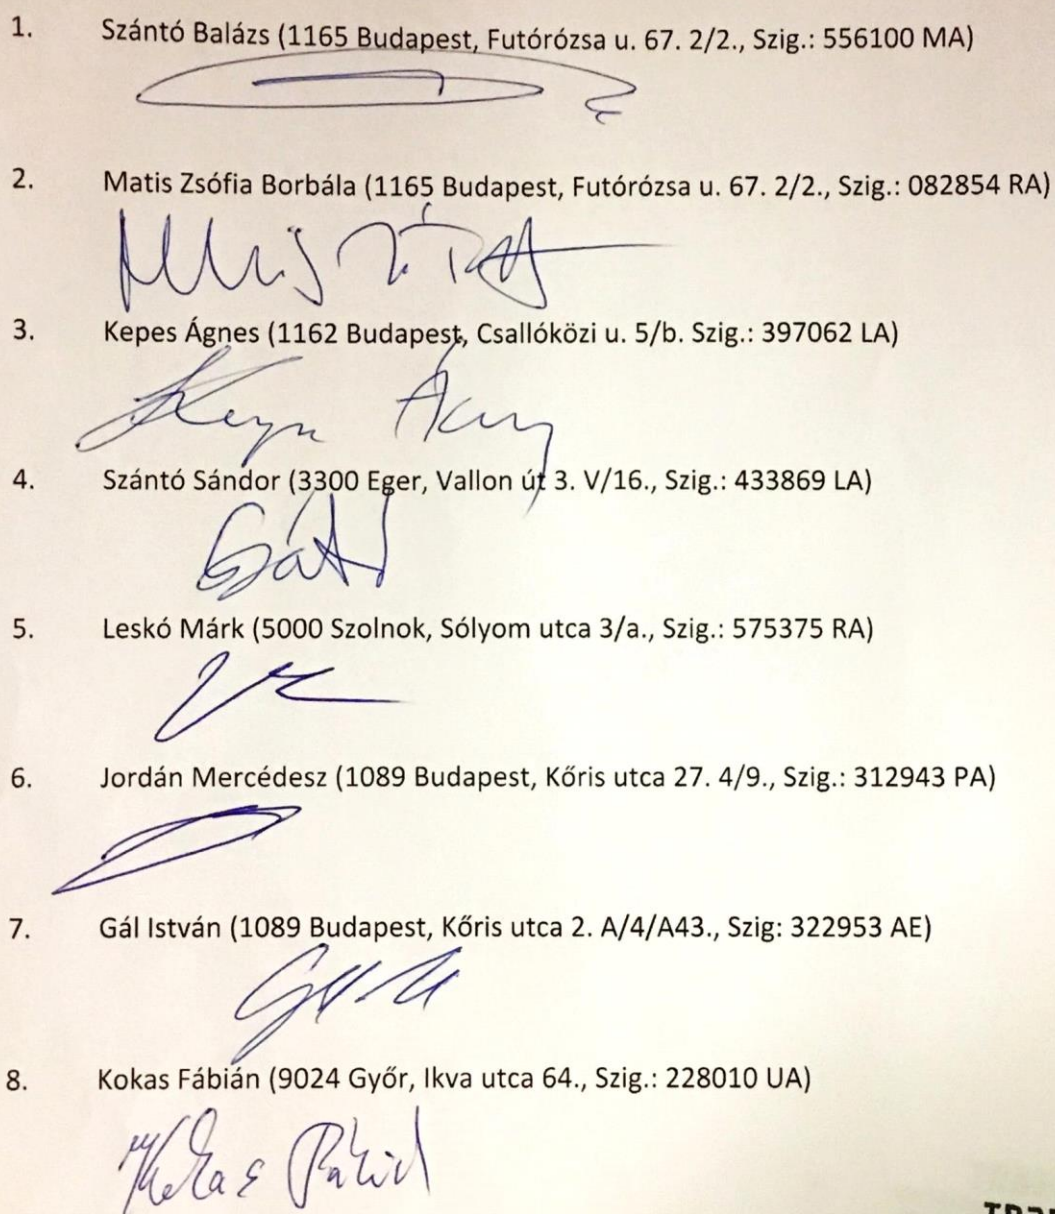 1. Szántó Balázs (1165 Budapest, Futórózsa u. 67. 2/2., Szig.: 556100 MA)
2. Matis Zsófia Borbála (1165 Budapest, Futórózsa u. 67. 2/2., Szig.: 082854 RA)
3. Kepes Ágnes (1162 Budapest, Csallóközi u. 5/b. Szig.: 397062 LA)
4. Szántó Sándor (3300 Eger, Vallon út 3. V/16., Szig.: 433869 LA)
5. Leskó Márk (5000 Szolnok, Sólyom utca 3/a., Szig.: 575375 RA)
6. Jordán Mercédesz (1089 Budapest, Kőris utca 27. 4/9., Szig.: 312943 PA)
7. Gál István (1089 Budapest, Kőris utca 2. A/4/A43., Szig: 322953 AE)
8. Kokas Fábián (9024 Győr, Ikva utca 64., Szig.: 228010 UA)